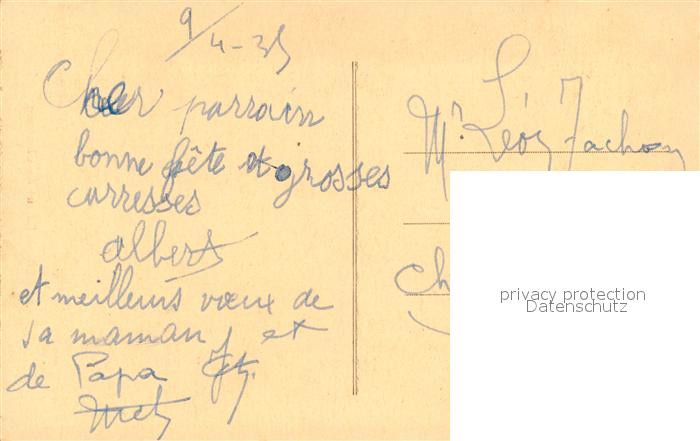 9/4-35
Cher parrain
bonne fête et grosses
carresses
albert
et meilleurs vœux de
sa maman, et
de Papa
Mr. Léon Fachon
Ch
privacy protection
Datenschutz